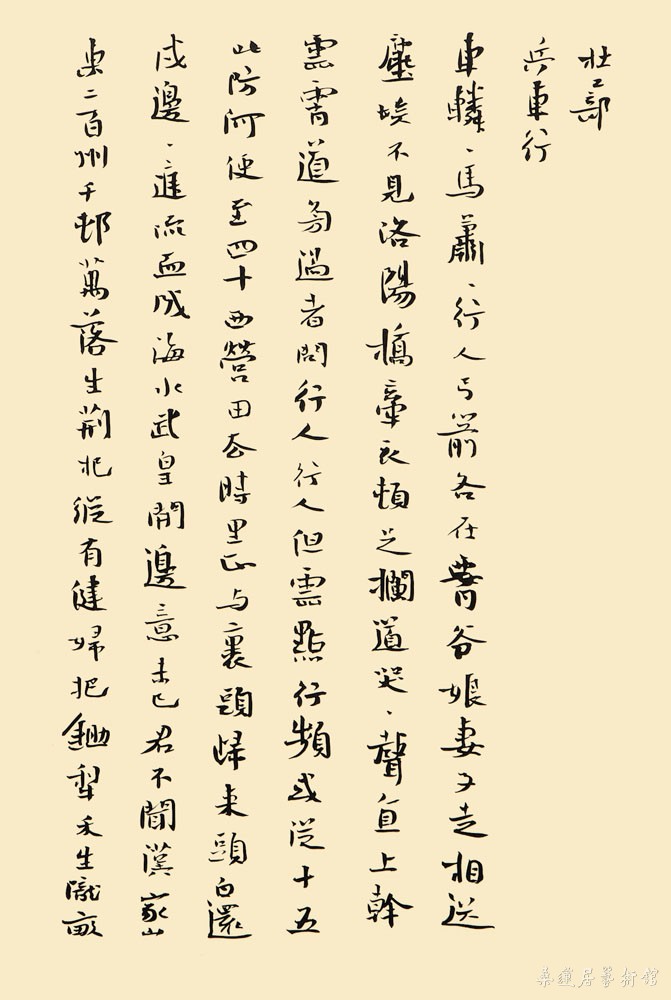 杜工部
兵車行
車轔、馬蕭、行人弓箭各在腰爺娘妻子走相送
塵埃不見洛陽橋牽衣頓足攔道哭、聲直上幹
雲霄道旁過者問行人行人但雲點行頻或從十五
北防河便至四十西營田去時里正与裹頭歸來頭白還
戍邊、庭流血成海水武皇開邊意未已君不聞漢家山
東二百州千邨萬落生荆杞縱有健婦把鋤犁禾生隴畝
桑蓮居藝術館